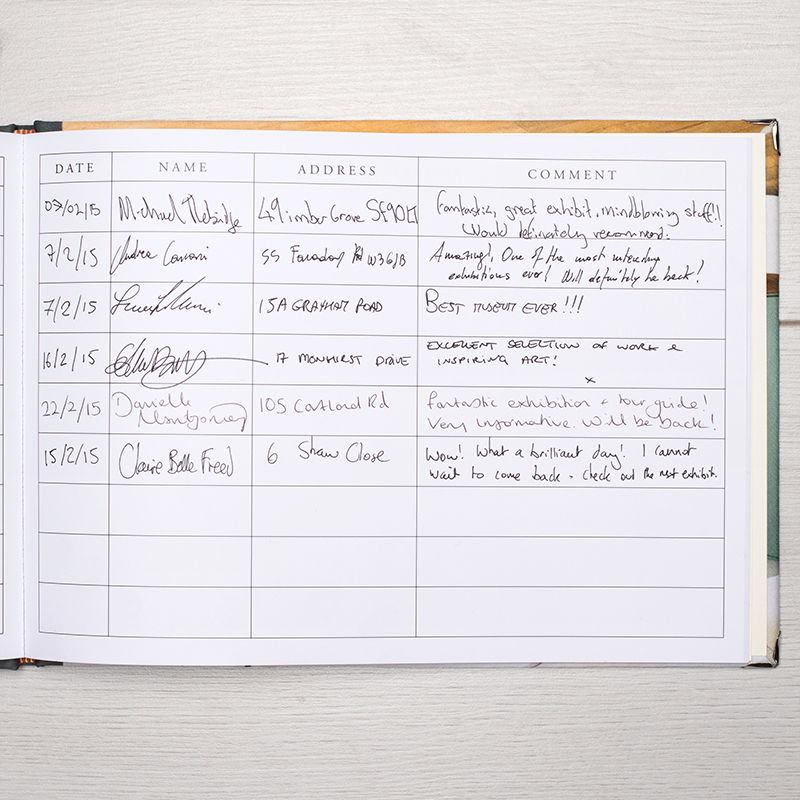 DATE NAME ADDRESS COMMENT
02/15 Michael 49 imber Grove Fantastic, great exhibit, mindblowing stuff!!
Would definately recommend.
7/2/15 Andrea 55 Faraday Rd W36JB Amazing!, One of the most interesting
exhibitions ever! Will definitely be back!
7/2/15 15A GRAHAM ROAD BEST MUSEUM EVER!!!
16/2/15 17 MONKHIRST DRIVE EXCELLENT SELECTION OF WORK &
INSPIRING ART!
x
22/2/15 Danielle 105 Cortland Rd fantastic exhibition + tour guide!
Montgomery Very informative. Will be back!
15/2/15 Claire Belle Freed 6 Shaw Close Wow! What a brilliant day! I cannot
wait to come back - check out the next exhibit.